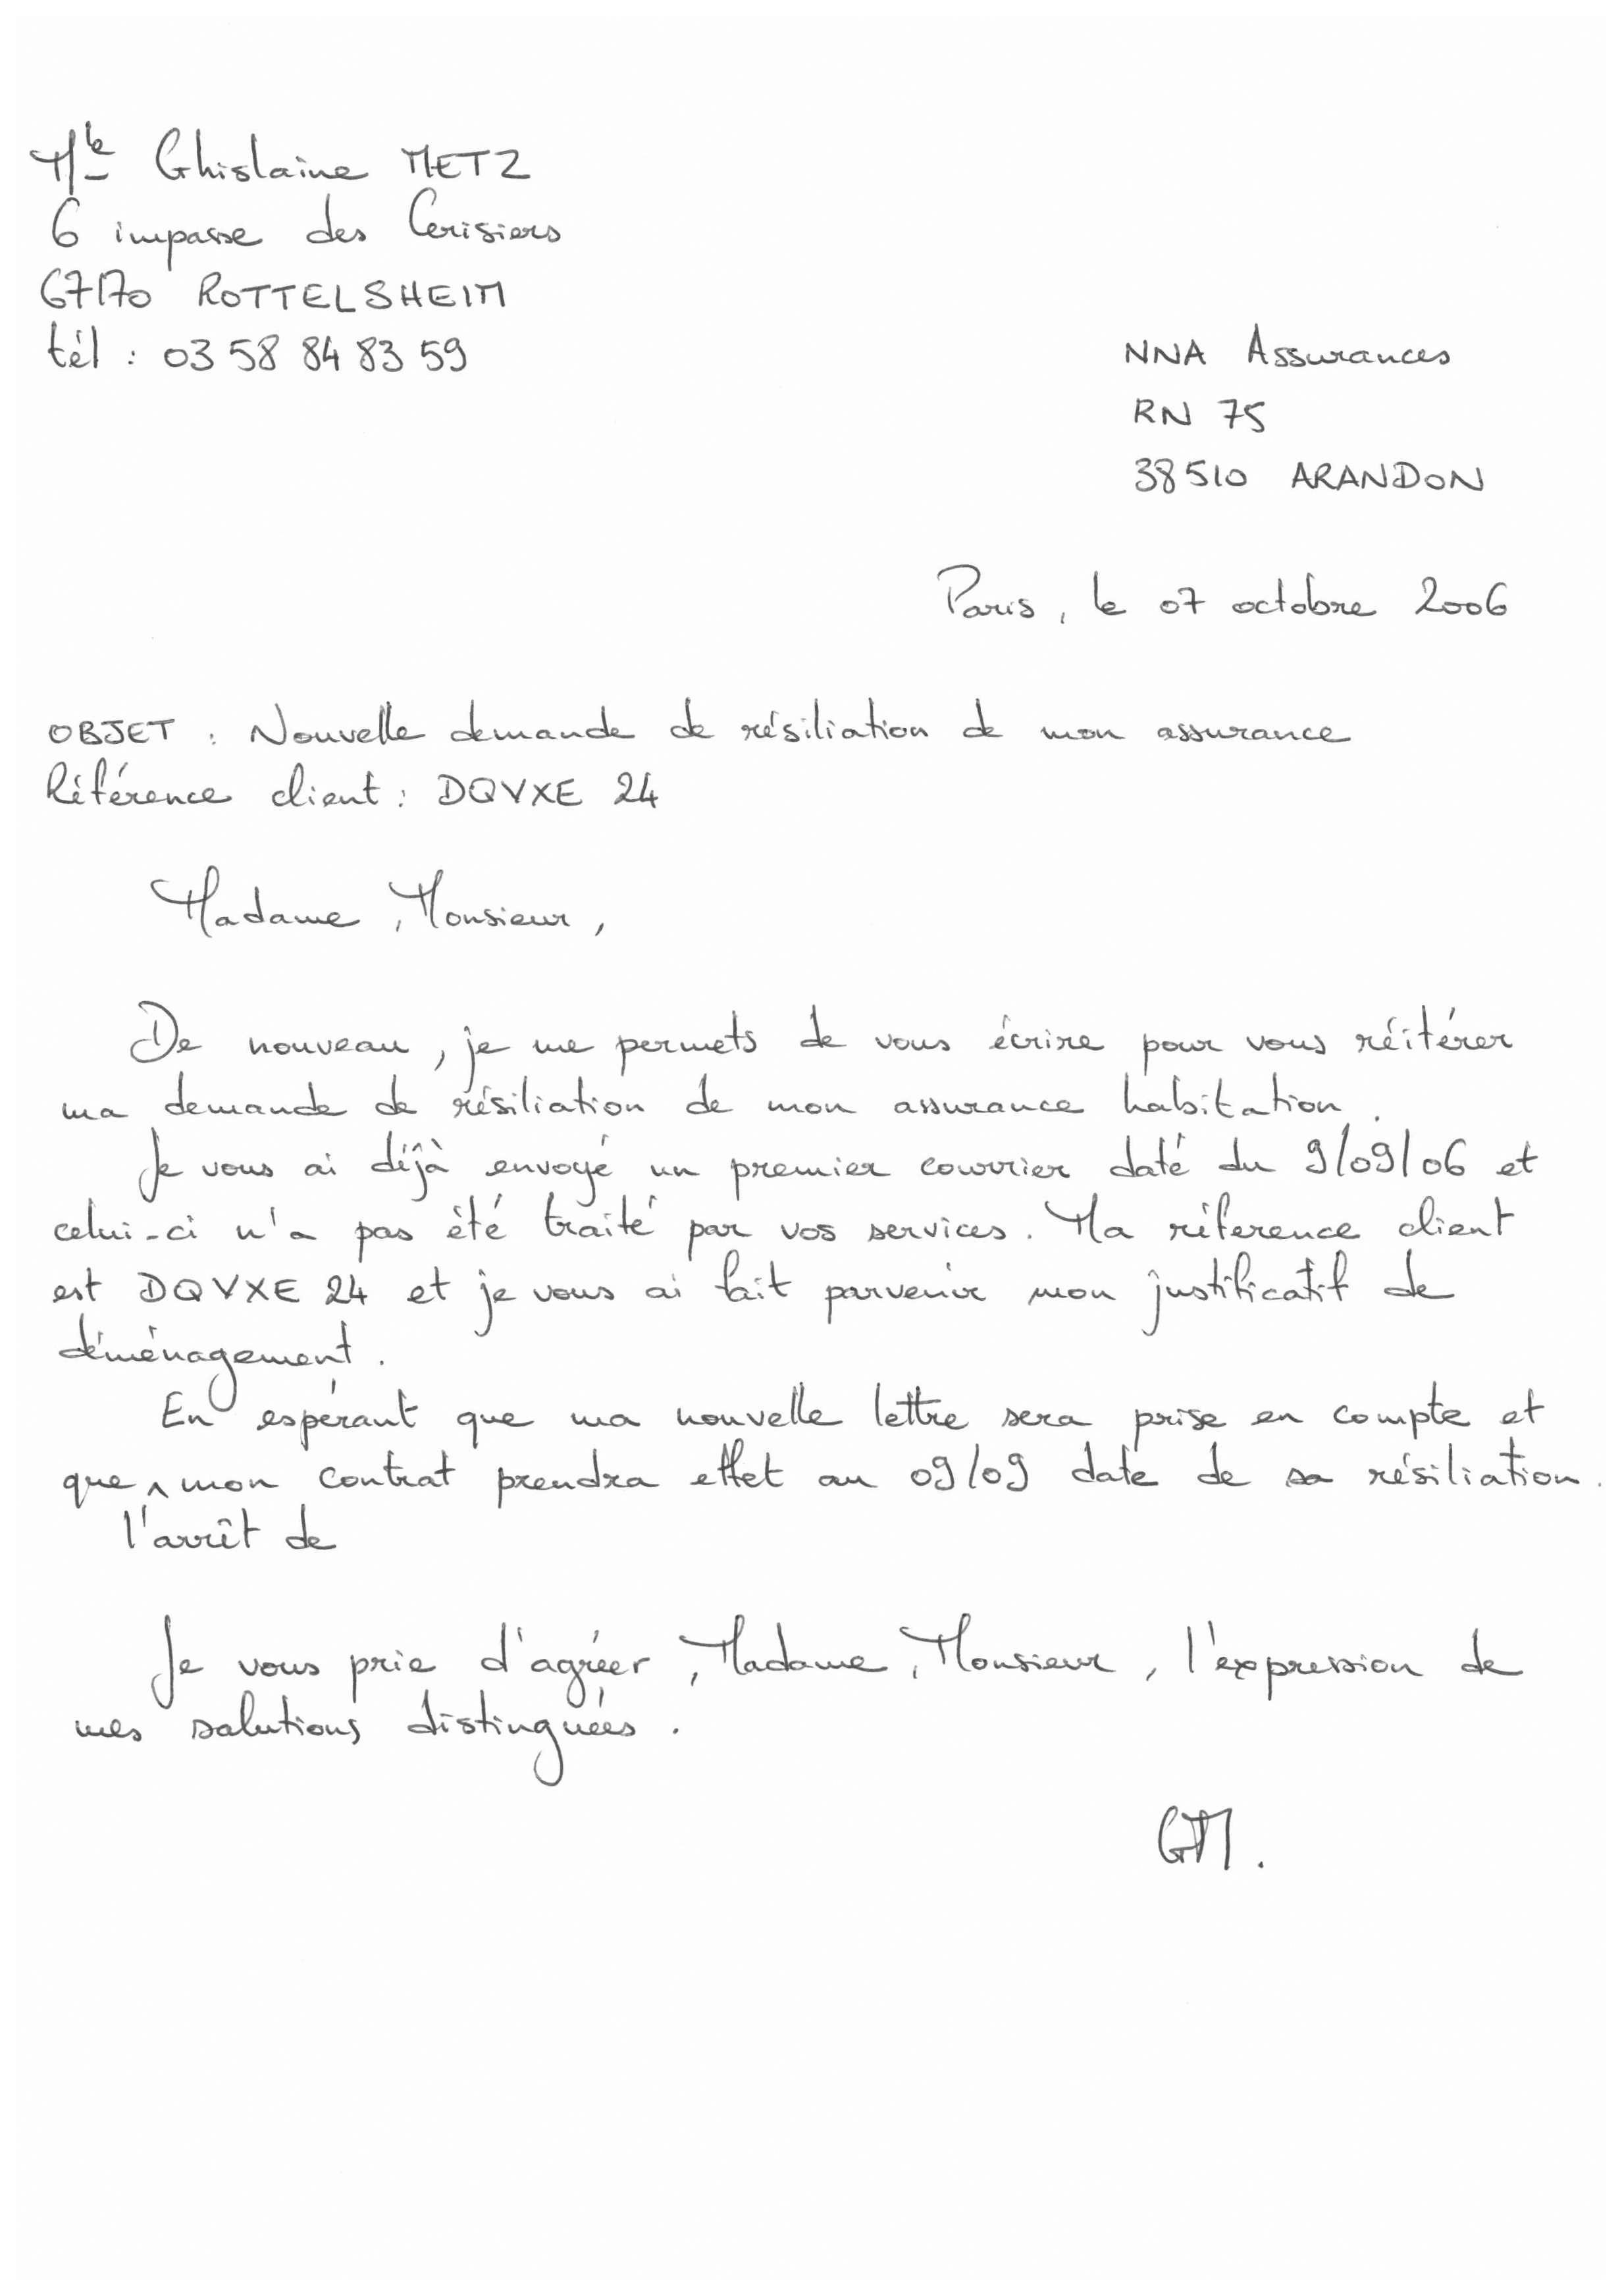 Mle Ghislaine METZ
6 impasse des Cerisiers
67170 ROTTELSHEIM
tél : 03 58 84 83 59
NNA Assurances
RN 75
38510 ARANDON
Paris, le 07 octobre 2006
OBJET : Nouvelle demande de résiliation de mon assurance
Référence client : DQVXE 24
Madame, Monsieur,
De nouveau, je me permets de vous écrire pour vous réitérer
ma demande de résiliation de mon assurance habitation.
Je vous ai déjà envoyé un premier courrier daté du 9/09/06 et
celui-ci n'a pas été traité par vos services. Ma réference client
est DQVXE 24 et je vous ai fait parvenir mon justificatif de
déménagement.
En espérant que ma nouvelle lettre sera prise en compte et
que ^ mon contrat prendra effet au 09/09 date de sa résiliation.
l'arrêt de
Je vous prie d'agréer, Madame, Monsieur, l'expression de
mes salutions distinguées.
GM.